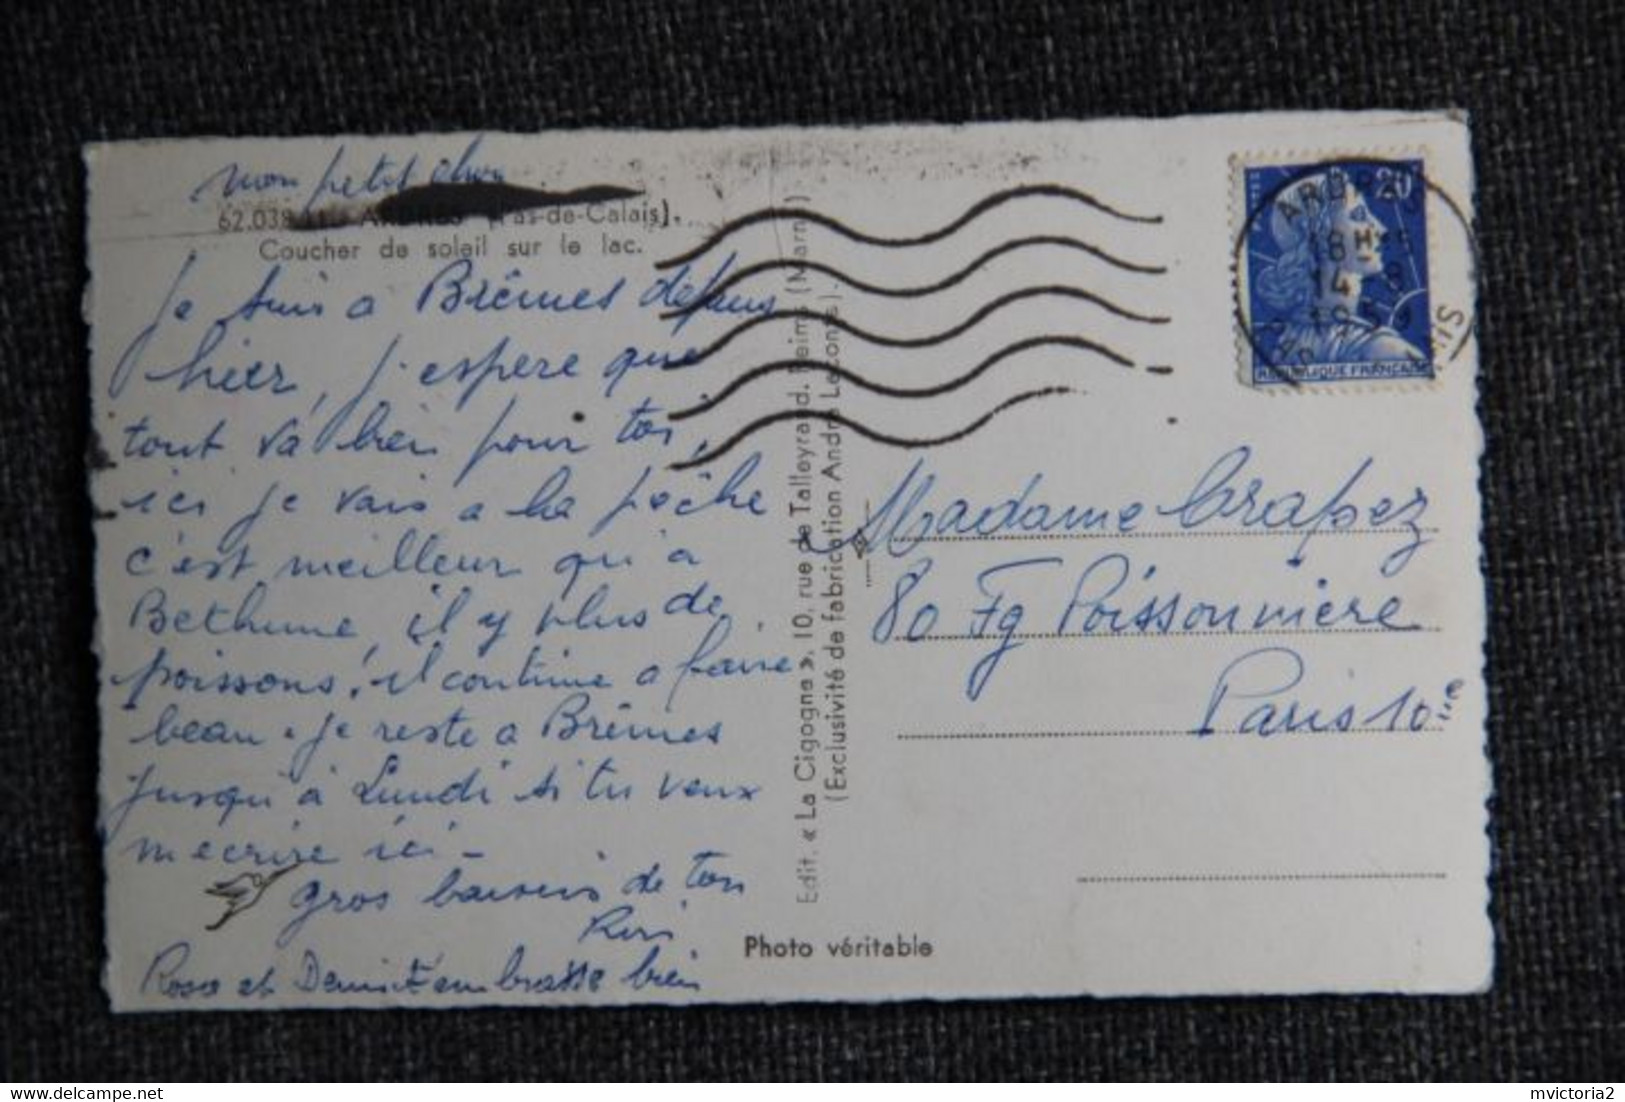 mon petit chou
62.038 ARDRES (Pas-de-Calais).
Coucher de soleil sur le lac.
Je suis a Brêmes depuis
hier, j'espere que
tout va bien pour toi,
ici je vais a la pêche
c'est meilleur qu'a
Bethune, il y plus de
poissons, il continue a faire
beau. je reste a Brêmes
jusqu'à Lundi si tu veux
m'ecrire ici -
gros baisers de ton
Riri
Rosa et Denis t'embrasse bien
Edit. « La Cigogne », 10, rue de Talleyrand, Reims (Marne)
(Exclusivité de fabrication André Leconte).
Photo véritable
POSTES
20
REPUBLIQUE FRANÇAISE
ARDRES
18 H
14 - 8
PAS CALAIS
Madame Crapez
80 Fg Poissonniere
Paris 10ie
mvictoria2